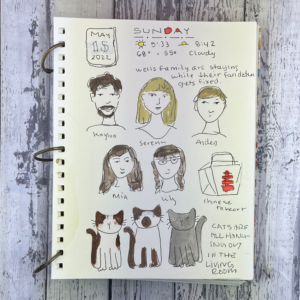 MAY
15
2022
SUNDAY
5:33 8:42
68° - 55° Cloudy
wells family are staying
while their
gets fixed.
Serena
Aided
Mia
Lily
chinese
takeout
CATS ARE
ALL HANG-
ING OUT
IN THE
LIVING
ROOM